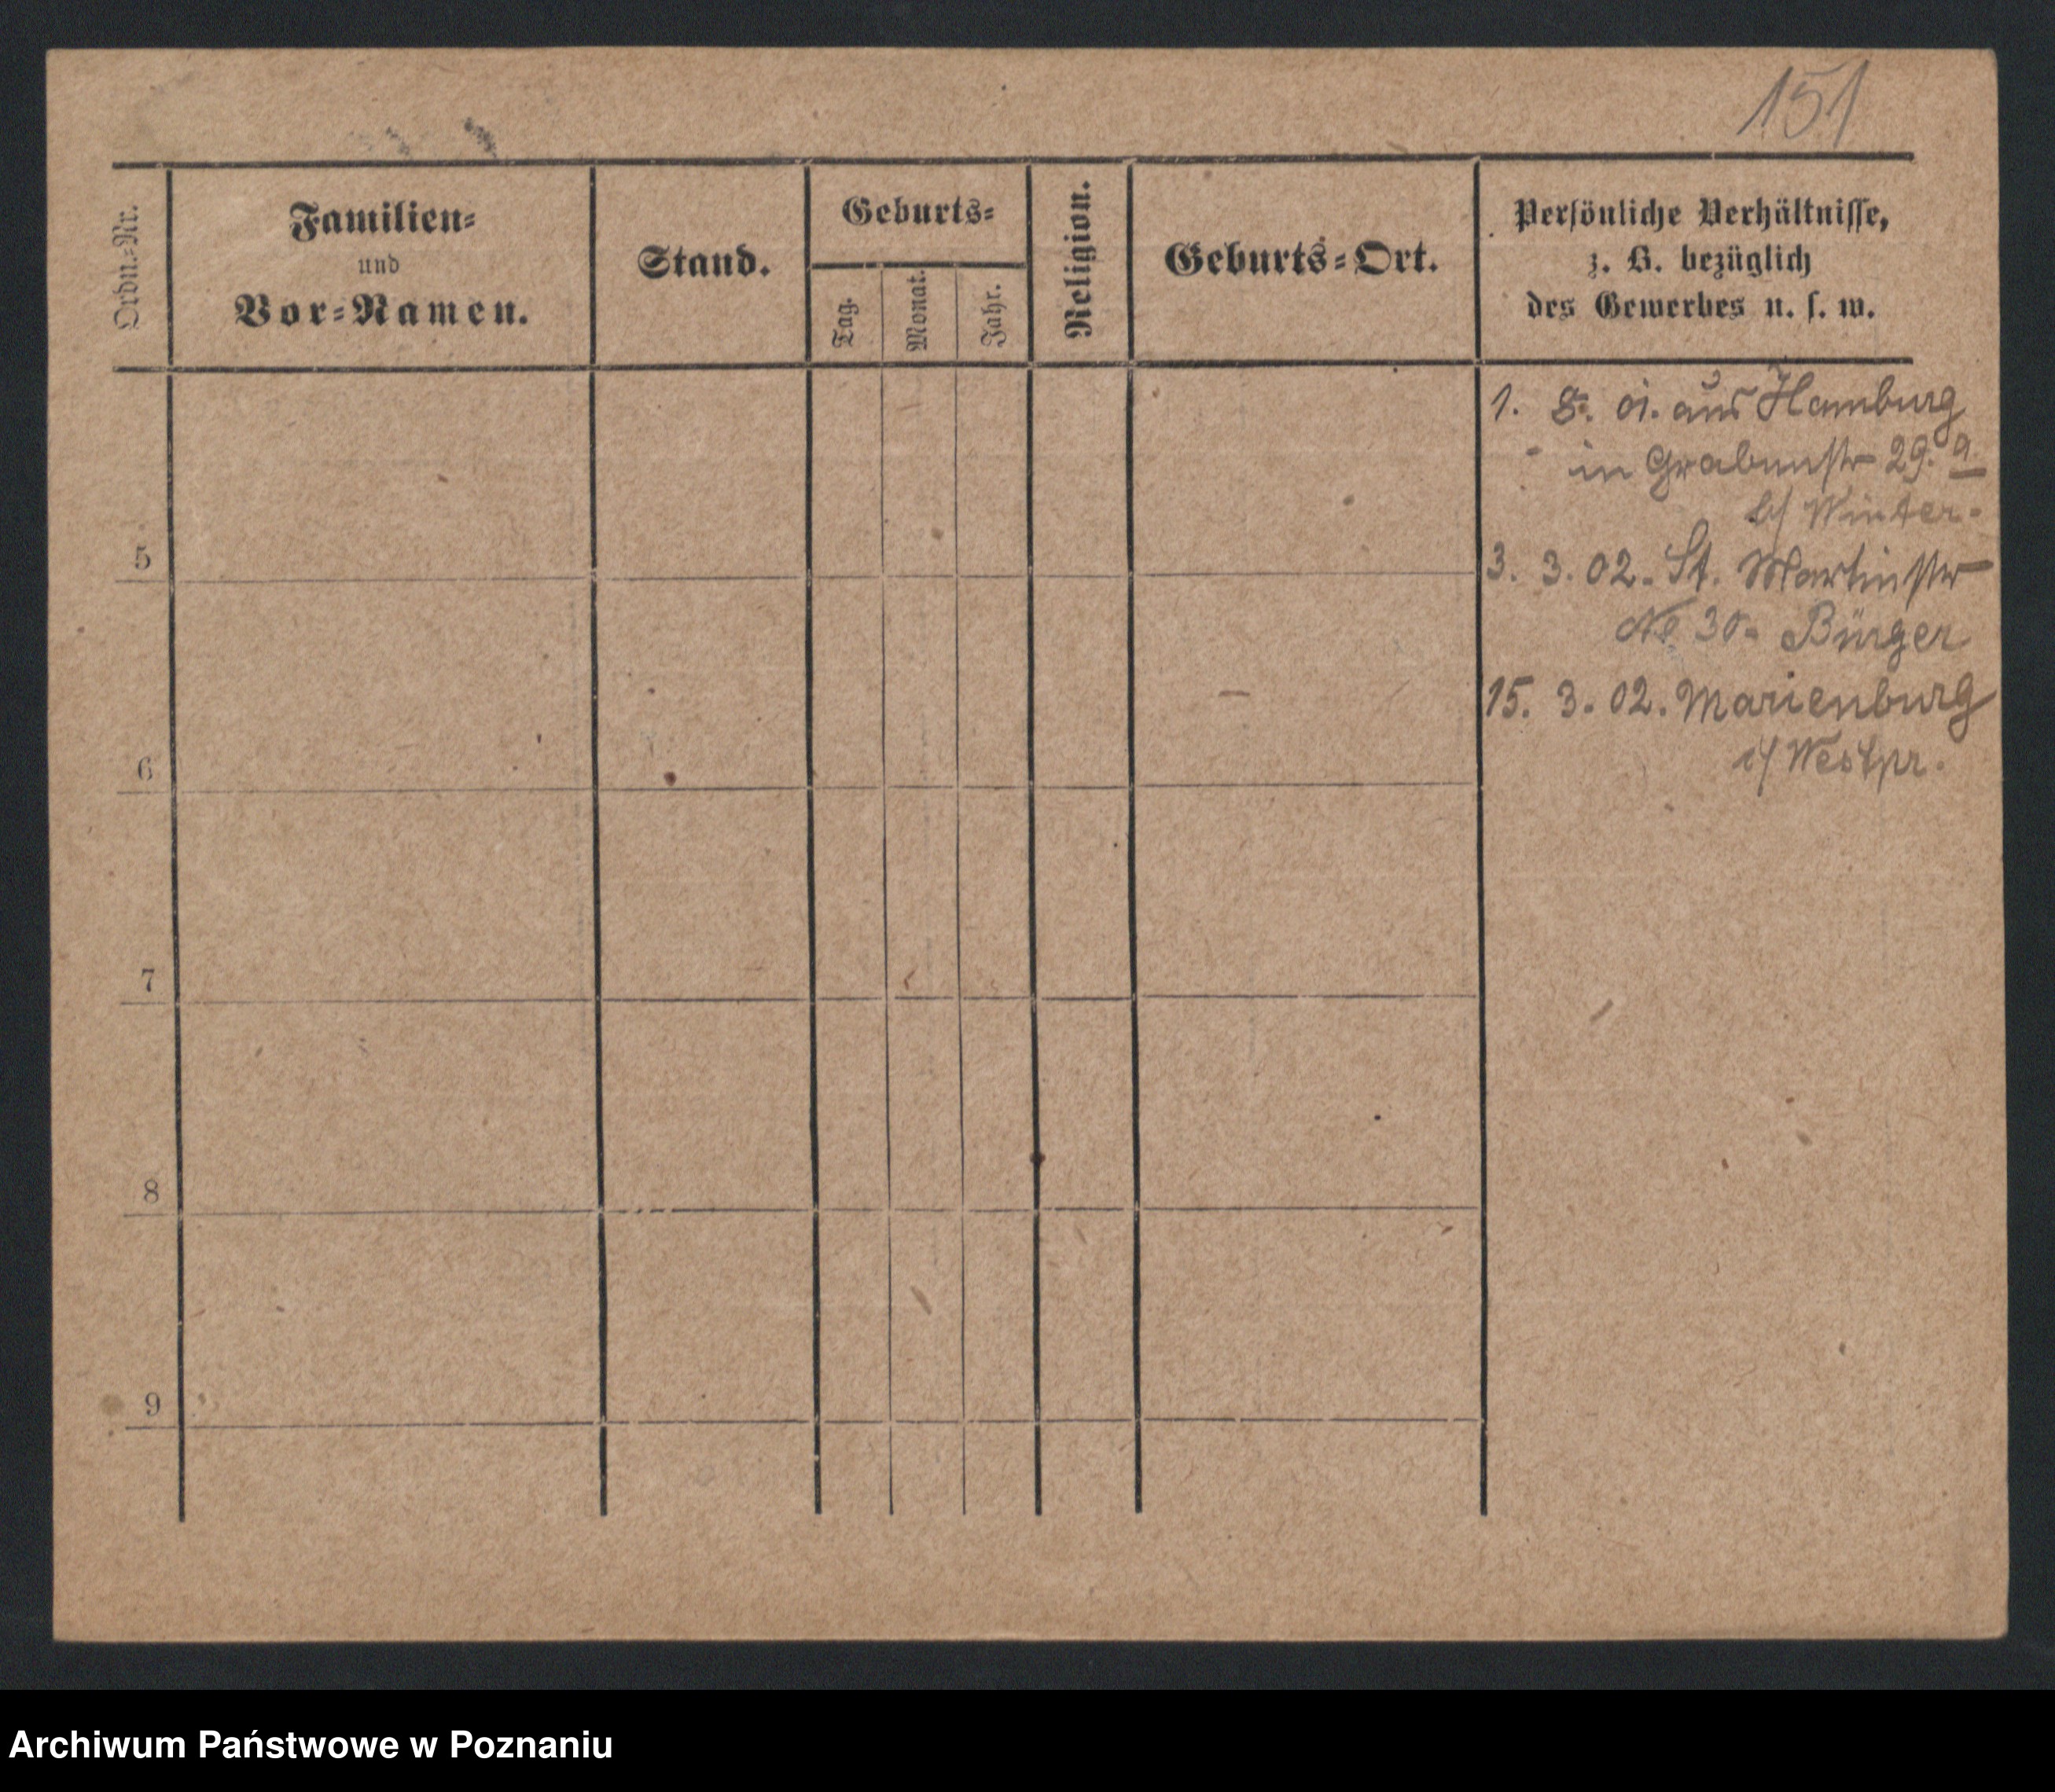 151
Ordn.-Nr.
Familien-
und
Vor-Namen.
Stand.
Geburts-
Tag.
Monat.
Jahr.
Religion.
Geburts-Ort.
Persönliche Verhältnisse,
z. B. bezüglich
des Gewerbes u. s. w.
1. 8. 01. aus Hamburg
in Grabenstr 29. a
b/ Winter.
5
3. 3. 02. St. Martinstr
No 30. Bürger
15. 3. 02. Marienburg
i/ Westpr.
6
7
8
9
Archiwum Państwowe w Poznaniu